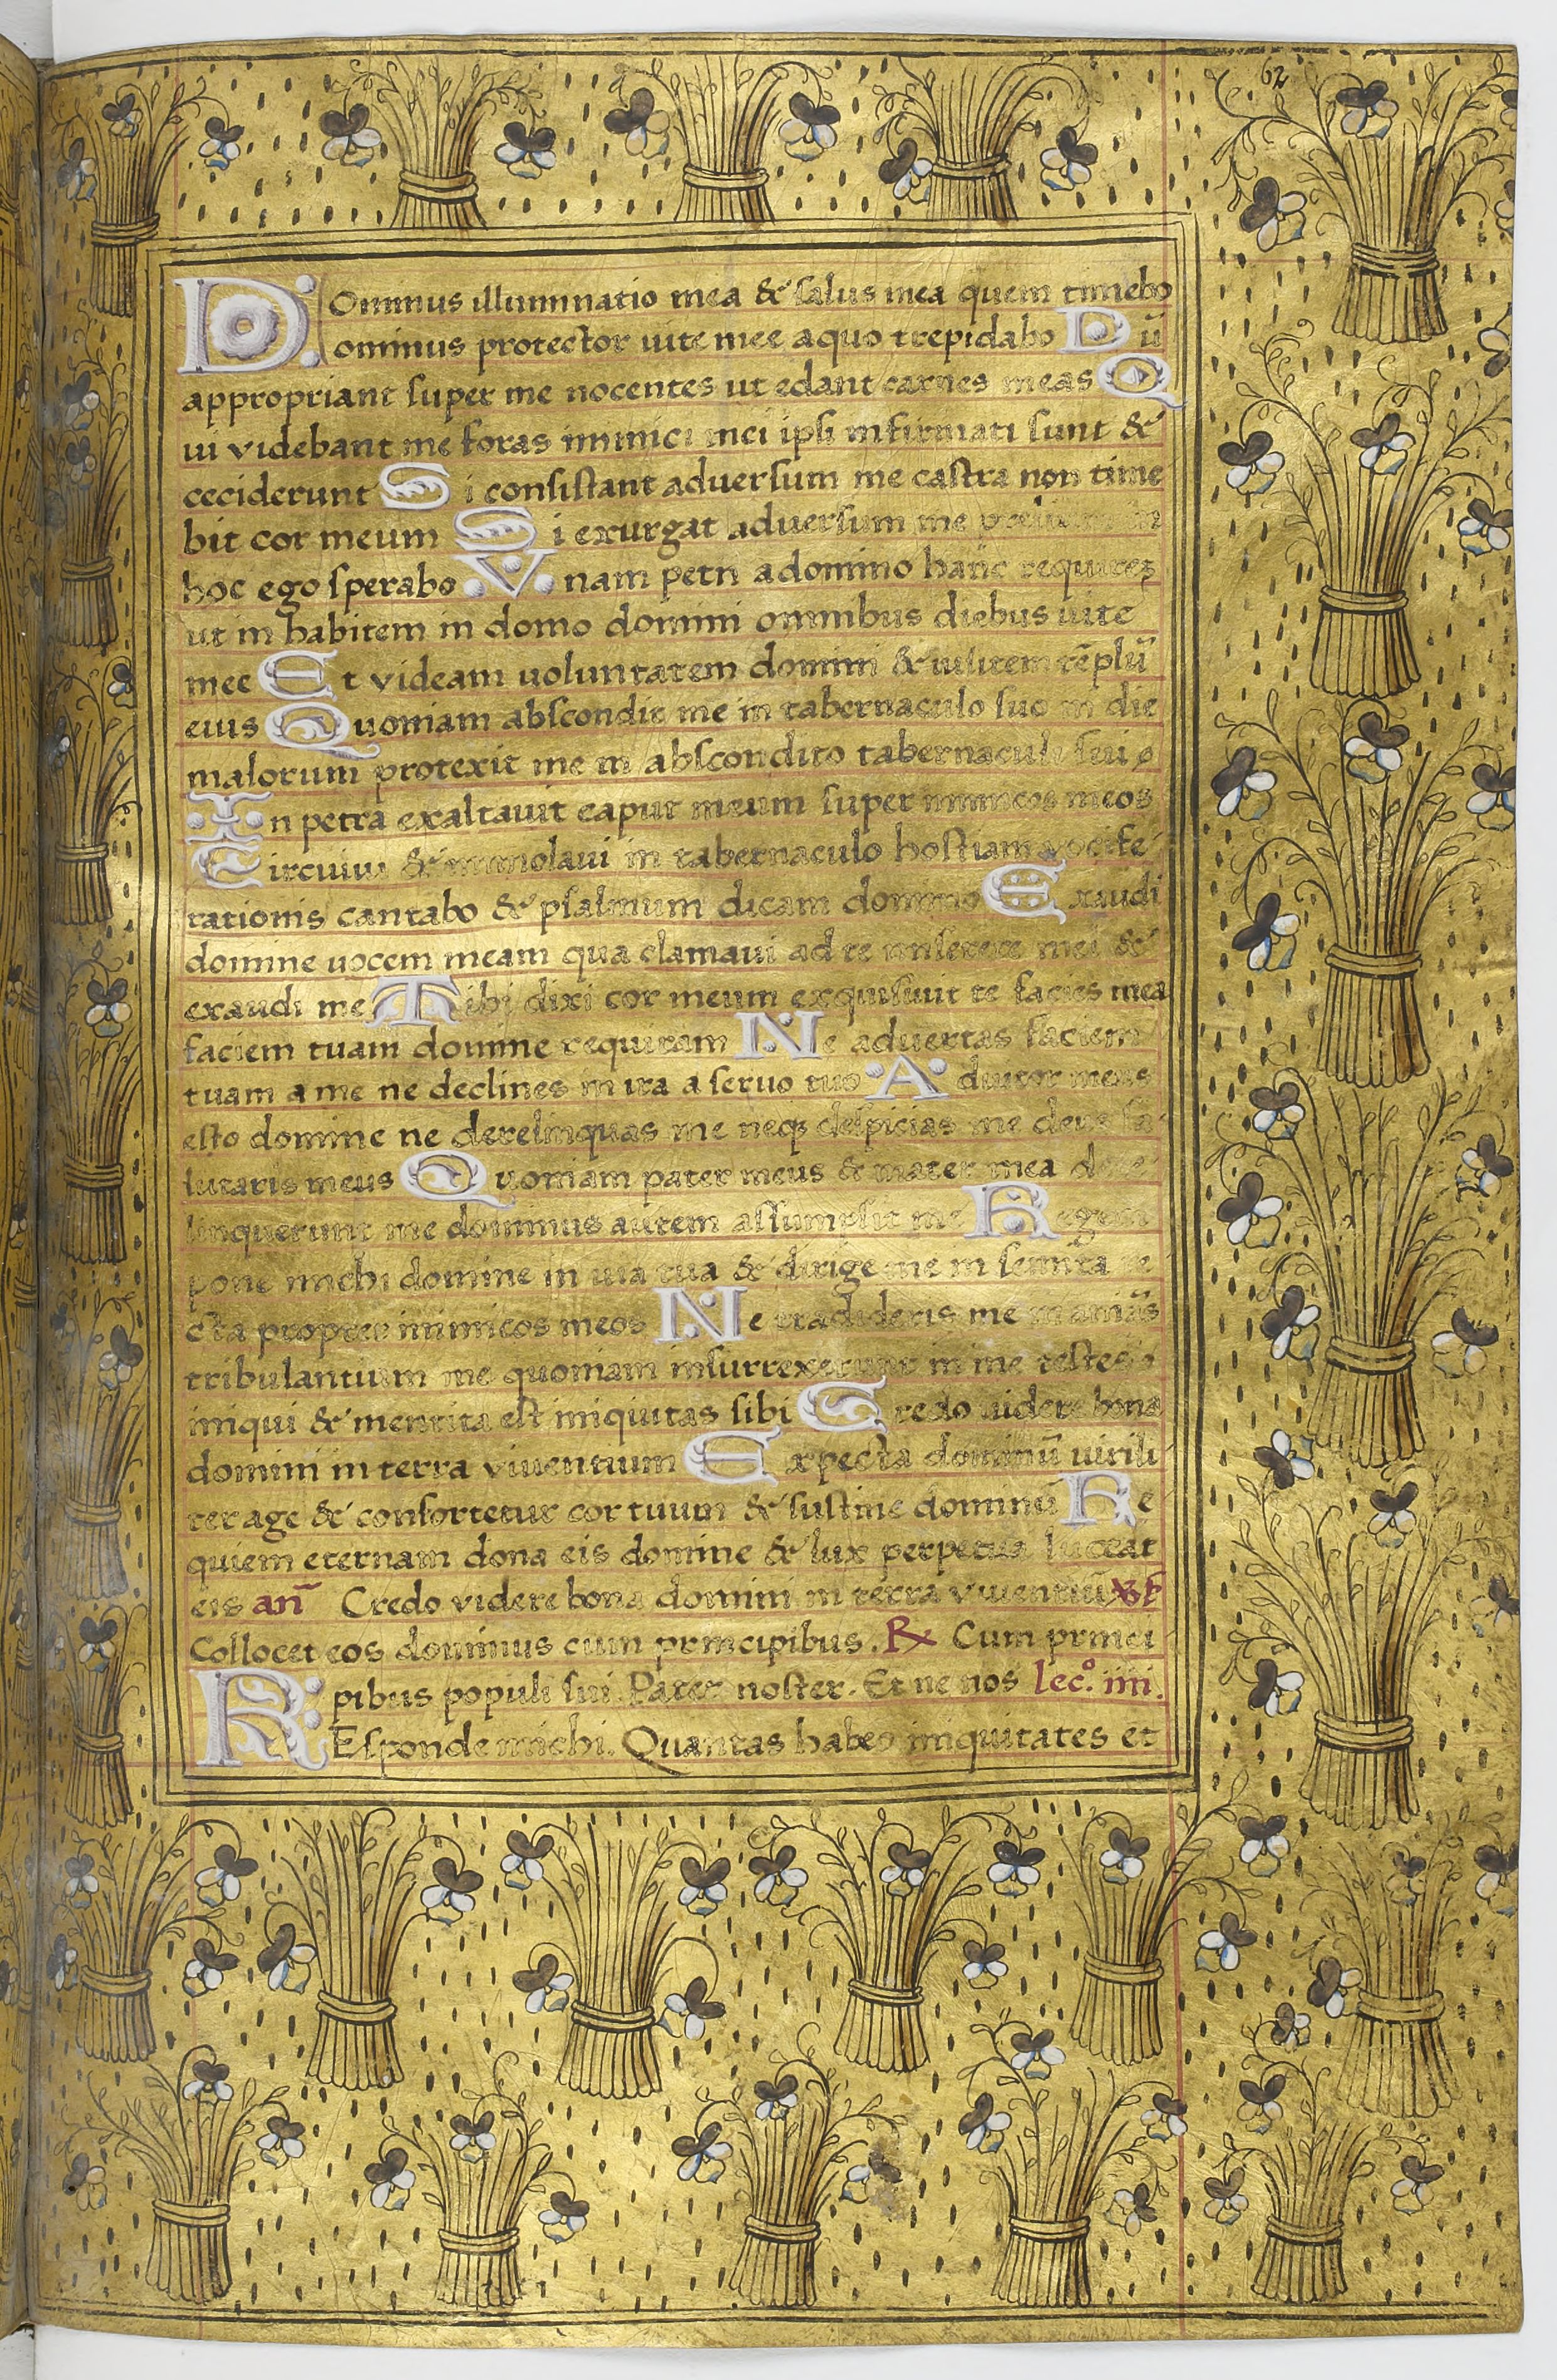 62
DOminus illuminatio mea & salus mea quem timebo
ominus protector uite mee aquo trepidabo Dū
appropriant super me nocentes ut edant carnes meas Q
ui videbant me foras inimici mei ipsi infirmati sunt &
ceciderunt Si consistant adversum me castra non time
bit cor meum Si exurgat adversum me prelium in
hoc ego sperabo Vnam petii adomino hanc requirez
ut in habitem in domo domini omnibus diebus uite
mee Et videam uoluntatem domini & uisitem tēplū
eius Quoniam abscondit me in tabernaculo suo in die
malorum protexit me in abscondito tabernaculi sui
In petra exaltauit caput meum super inimicos meos
Circuiui & immolaui in tabernaculo hostiam vocife
rationis cantabo & psalmum dicam domino Exaudi
domine uocem meam qua clamaui ad te miserere mei &
exaudi me Tibi dixi cor meum exquisiuit te facies mea
faciem tuam domine requiram Ne advertas faciem
tuam a me ne declines in ira a seruo tuo Adiutor meus
esto domine ne derelinquas me neqz despicias me deus sa
lutaris meus Quoniam pater meus & mater mea dere
linquerunt me dominus autem assumpsit me Regem
pone michi domine in uia tua & dirige me in semita re
cta propter inimicos meos Ne tradideris me in aniās
tribulantium me quoniam insurrexerunt in me testes
iniqui & mentita est iniquitas sibi Credo uidere bona
domini in terra viuentium Expecta dominū uirili
ter age & confortetur cor tuum & sustine dominū Re
quiem eternam dona eis domine & lux perpetua luceat
eis an̄ Credo videre bona domini in terra viuentiū
Collocet eos dominus cum principibus. ℟ Cum princi
pibus populi sui. Pater noster. Et ne nos lec°. iiii.
REsponde michi. Quantas habeo iniquitates et